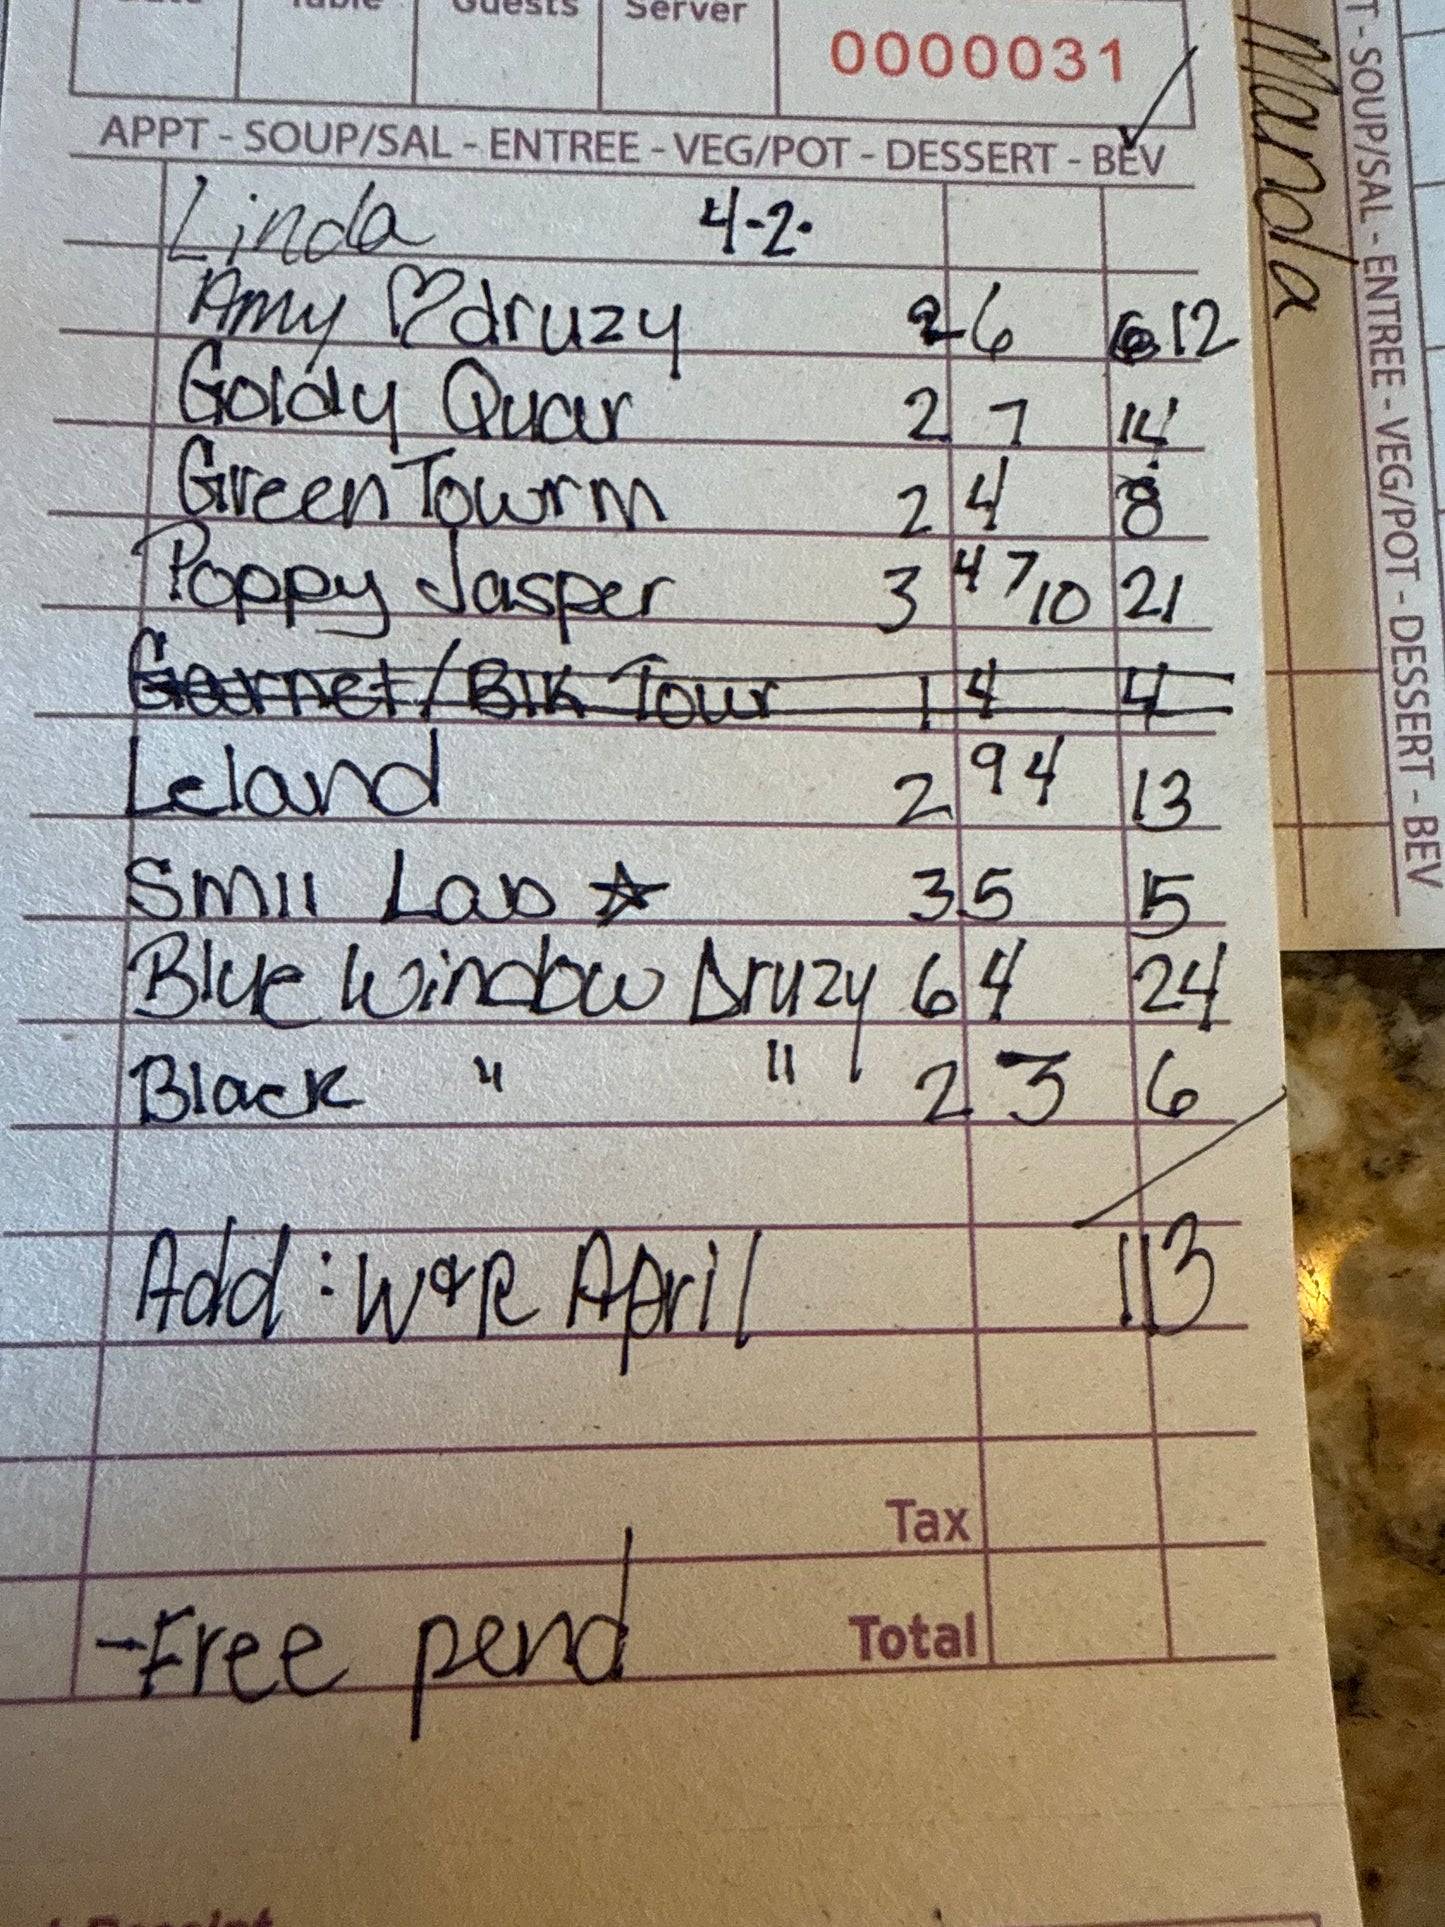 Table Guests Server
0000031
APPT - SOUP/SAL - ENTREE - VEG/POT - DESSERT - BEV
Linda 4-2.
Amy ♡druzy 2 6 12
Goldy Quar 2 7 14
Green Towrm 2 4 8
Poppy Jasper 3 4 7/10 21
Garnet/Blk Tour 1 4 4
Leland 2 9 4 13
Smll Lab ☆ 3 5 15
Blue Window Druzy 6 4 24
Black " " 2 3 6
Add: W&R April 113
Tax
-Free pend Total
Receipt
Manola
T - SOUP/SAL - ENTREE - VEG/POT - DESSERT - BEV